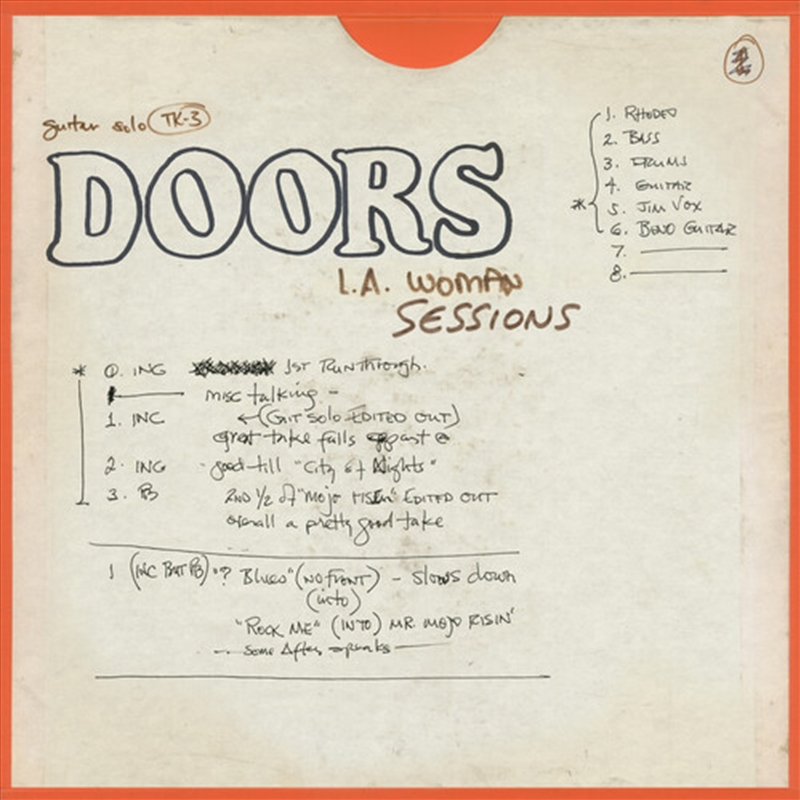 guitar solo TK-3
DOORS
L.A. WOMAN
SESSIONS
1. RHODES
2. BASS
3. DRUMS
4. GUITAR
* 5. JIM VOX
6. BEND GUITAR
7.
8.
* 0. INC 1ST RUNTHROUGH.
misc talking -
1. INC ←(GIT SOLO EDITED OUT)
great take falls apart @
2. INC - good till "City of Nights"
3. PB 2ND 1/2 of "MOJO RISIN" EDITED OUT
overall a pretty good take
1 (INC BUT PB) "? Blues" (NO FRONT) - slows down
(into)
"ROCK ME" (INTO) MR. MOJO RISIN'
— Some After